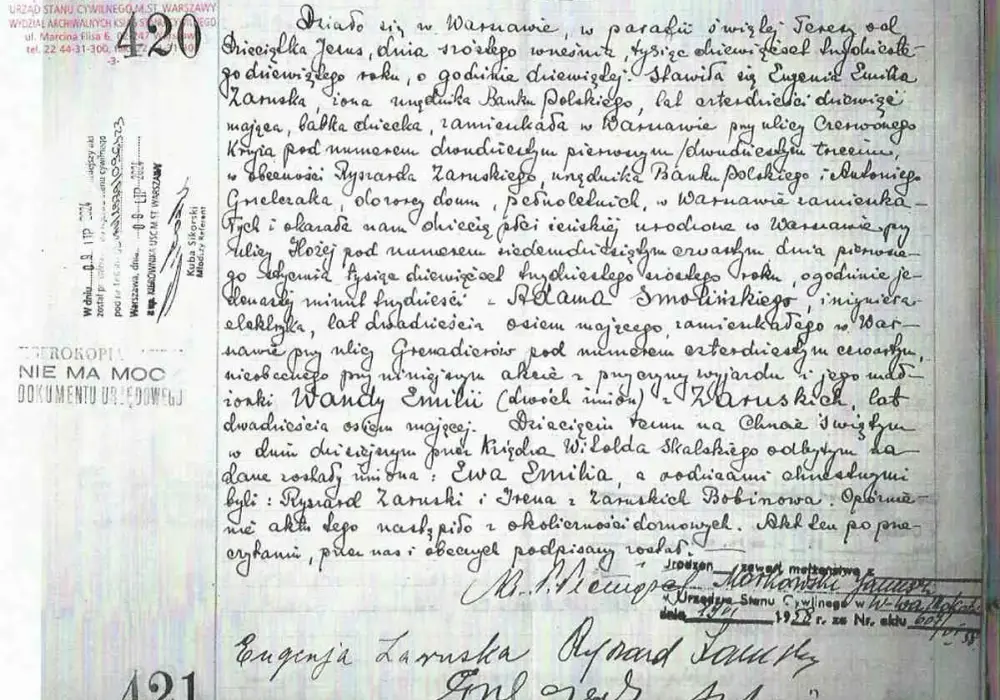 URZĄD STANU CYWILNEGO M.ST. WARSZAWY
WYDZIAŁ ARCHIWALNYCH KSIĄG STANU CYWILNEGO
ul. Marcina Flisa 6, 02-247 Warszawa
tel. 22 44-31-300,
-3-
420
Działo się w Warszawie, w parafii świętej Teresy od
Dzieciątka Jezus, dnia szóstego września, tysiąc dziewięćset trzydzieste-
go dziewiątego roku, o godzinie dziewiątej. Stawiła się Eugenia Emilia
Zaruska, żona urzędnika Banku Polskiego, lat czterdzieści dziewięć
mająca, babka dziecka, zamieszkała w Warszawie przy ulicy Czerwonego
Krzyża pod numerem dwudziestym pierwszym/dwudziestym trzecim,
w obecności Ryszarda Zaruskiego, urzędnika Banku Polskiego i Antoniego
dozorcy domu, pełnoletnich, w Warszawie zamieszka-
łych i okazała nam dziecię płci żeńskiej urodzone w Warszawie przy
ulicy Hożej pod numerem siedemdziesiątym czwartym dnia pierwsze-
go stycznia tysiąc dziewięćset trzydziestego szóstego roku, o godzinie je-
denastej minut trzydzieści z Adama Smolińskiego, inżyniera
elektryka, lat dwadzieścia osiem mającego, zamieszkałego w War-
szawie przy ulicy Grenadierów pod numerem czterdziestym czwartym,
nieobecnego przy niniejszym akcie z przyczyny wyjazdu i jego mał-
żonki Wandy Emilii (dwóch imion) z Zaruskich, lat
dwadzieścia osiem mającej. Dziecięciu temu na Chrzcie Świętym
w dniu dzisiejszym przez Księdza Witolda Skalskiego odbytym na-
dane zostały imiona: Ewa Emilia, a rodzicami chrzestnymi
byli: Ryszard Zaruski i Irena z Zaruskich Bobinowa. Opóźnie-
nie aktu tego nastąpiło z okoliczności domowych. Akt ten po prze-
czytaniu, przez nas i obecnych podpisany został.
zawarł małżeństwo z
Markowski Janusz
w Urzędzie Stanu Cywilnego w W-wa
dnia 1958 r. za Nr. aktu
Eugenja Zaruska Ryszard Zaruski
421
W dniu 09 LIP 2024
Warszawa, dnia 09 LIP 2024
z up. KIEROWNIKA USC M.ST. WARSZAWY
Kuba Sikorski
Młodszy Referent
NIE MA MOC
DOKUMENTU URZĘDOWEGO